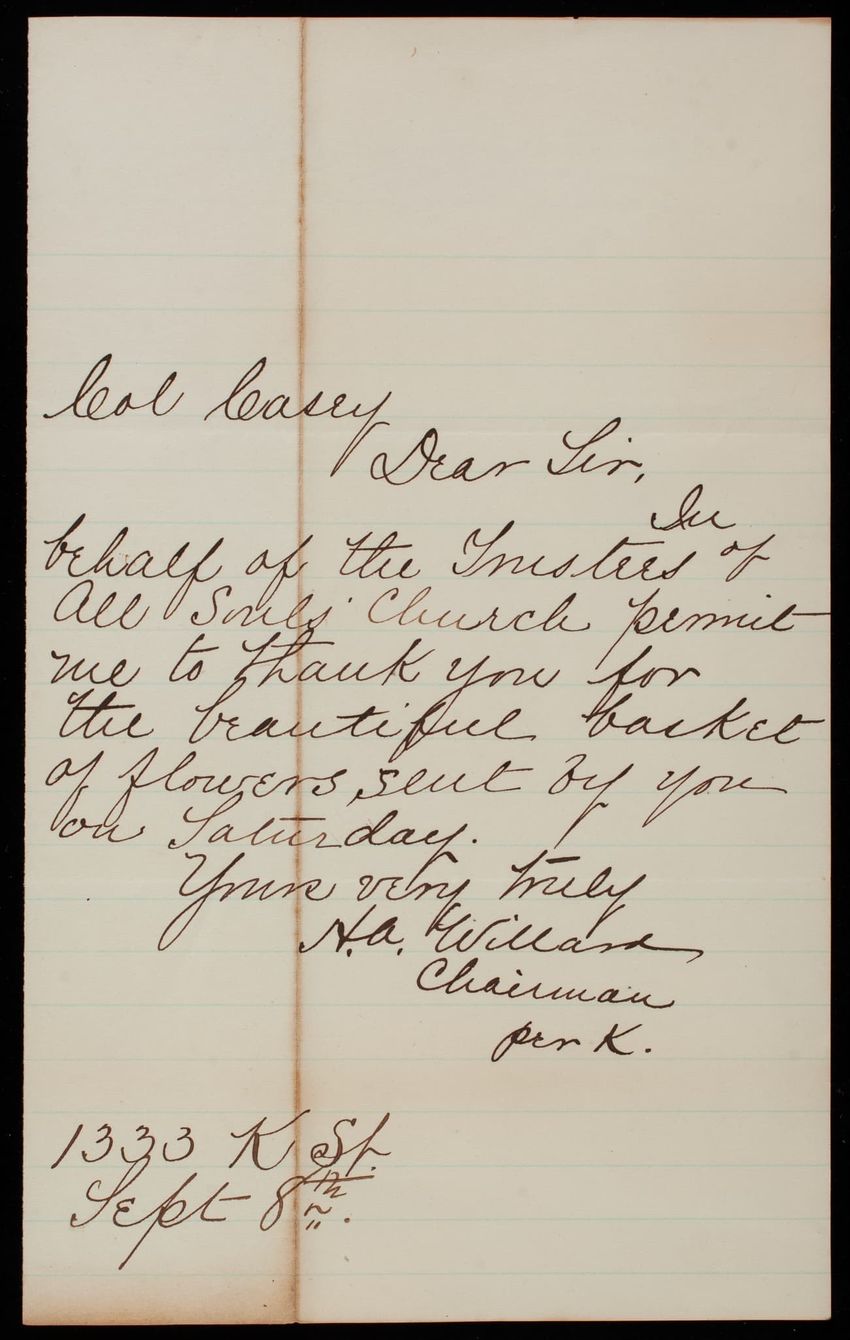 Col Casey
Dear Sir,
In
behalf of the Trustees of
All Souls' Church permit
me to thank you for
the beautiful basket
of flowers sent by you
on Saturday.
Yours very truly
H.A. Willard
Chairman
per K.
1333 K St.
Sept 8th.